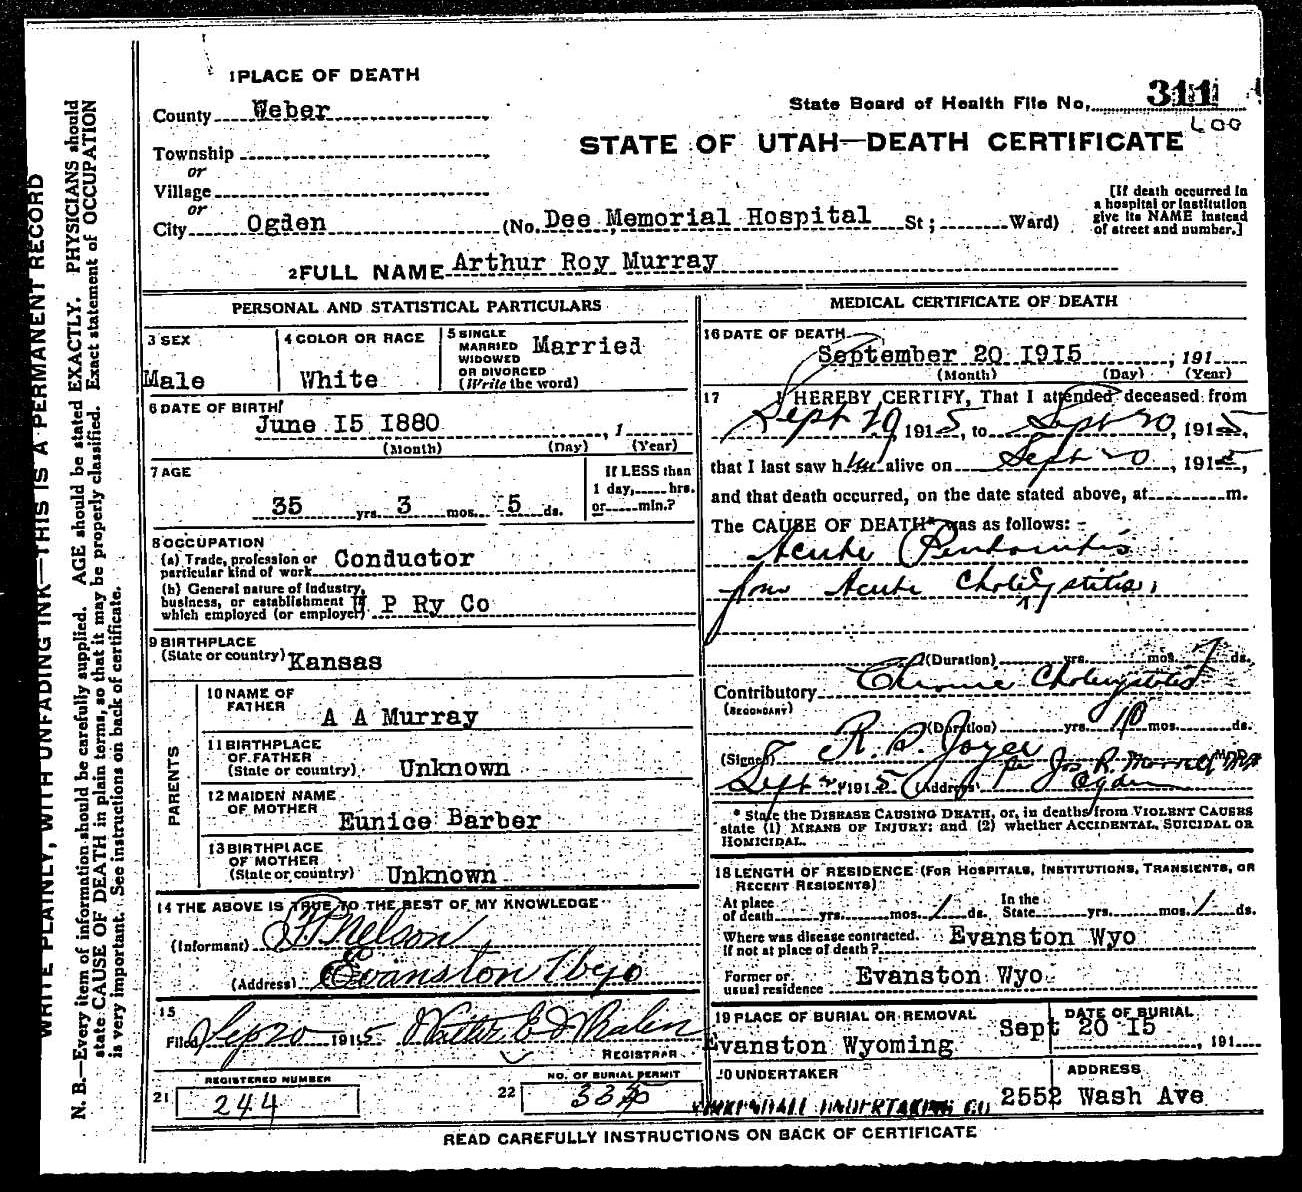 1 PLACE OF DEATH
County Weber
State Board of Health File No. 311
600
Township
STATE OF UTAH—DEATH CERTIFICATE
or
Village
or
City Ogden (No. Dee Memorial Hospital St; Ward)
[If death occurred in
a hospital or institution
give its NAME instead
of street and number.]
2 FULL NAME Arthur Roy Murray
PERSONAL AND STATISTICAL PARTICULARS
3 SEX
Male
4 COLOR OR RACE
White
5 SINGLE
MARRIED
WIDOWED
OR DIVORCED
(Write the word)
Married
6 DATE OF BIRTH
June 15 1880, 1
(Month) (Day) (Year)
7 AGE
35 yrs. 3 mos. 5 ds.
If LESS than
1 day, hrs.
or min.?
8 OCCUPATION
(a) Trade, profession or
particular kind of work Conductor
(b) General nature of Industry,
business, or establishment in
which employed (or employer) P Ry Co
9 BIRTHPLACE
(State or country) Kansas
PARENTS
10 NAME OF
FATHER
A A Murray
11 BIRTHPLACE
OF FATHER
(State or country) Unknown
12 MAIDEN NAME
OF MOTHER
Eunice Barber
13 BIRTHPLACE
OF MOTHER
(State or country) Unknown
14 THE ABOVE IS TRUE TO THE BEST OF MY KNOWLEDGE
(Informant) Nelson
(Address) Evanston Wyo
15
Filed Sep 20 1915 Walter E Whalen
REGISTRAR
REGISTERED NUMBER
21 244
NO. OF BURIAL PERMIT
22 335
MEDICAL CERTIFICATE OF DEATH
16 DATE OF DEATH
September 20 1915, 191
(Month) (Day) (Year)
17 I HEREBY CERTIFY, That I attended deceased from
Sept 19, 1915, to Sept 20, 1915,
that I last saw him alive on Sept 20, 1915,
and that death occurred, on the date stated above, at m.
The CAUSE OF DEATH* was as follows:
Acute Peritonitis
from Acute Cholecystitis
(Duration) yrs. mos. 7 ds.
Contributory Chronic Cholecystitis
(SECONDARY)
(Duration) yrs. 18 mos. ds.
(Signed) R. S. Joyce per Jos R. Morrell
Sept 1915 (Address) Ogden
* State the DISEASE CAUSING DEATH, or, in deaths from VIOLENT CAUSES
state (1) MEANS OF INJURY; and (2) whether ACCIDENTAL, SUICIDAL OR
HOMICIDAL.
18 LENGTH OF RESIDENCE (FOR HOSPITALS, INSTITUTIONS, TRANSIENTS, OR
RECENT RESIDENTS)
At place
of death yrs. mos. 1 ds.
In the
State yrs. mos. 1 ds.
Where was disease contracted.
If not at place of death? Evanston Wyo
Former or
usual residence Evanston Wyo
19 PLACE OF BURIAL OR REMOVAL
Evanston Wyoming
DATE OF BURIAL
Sept 20 15, 191
20 UNDERTAKER
UNDERTAKING CO
ADDRESS
2552 Wash Ave
READ CAREFULLY INSTRUCTIONS ON BACK OF CERTIFICATE
WRITE PLAINLY, WITH UNFADING INK—THIS IS A PERMANENT RECORD
N. B.—Every item of information should be carefully supplied. AGE should be stated EXACTLY. PHYSICIANS should
state CAUSE OF DEATH in plain terms, so that it may be properly classified. Exact statement of OCCUPATION
is very important. See instructions on back of certificate.